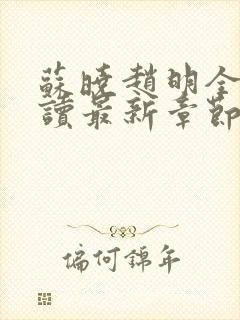 蘇曉趙明全
讀最新章節
偏何錦年